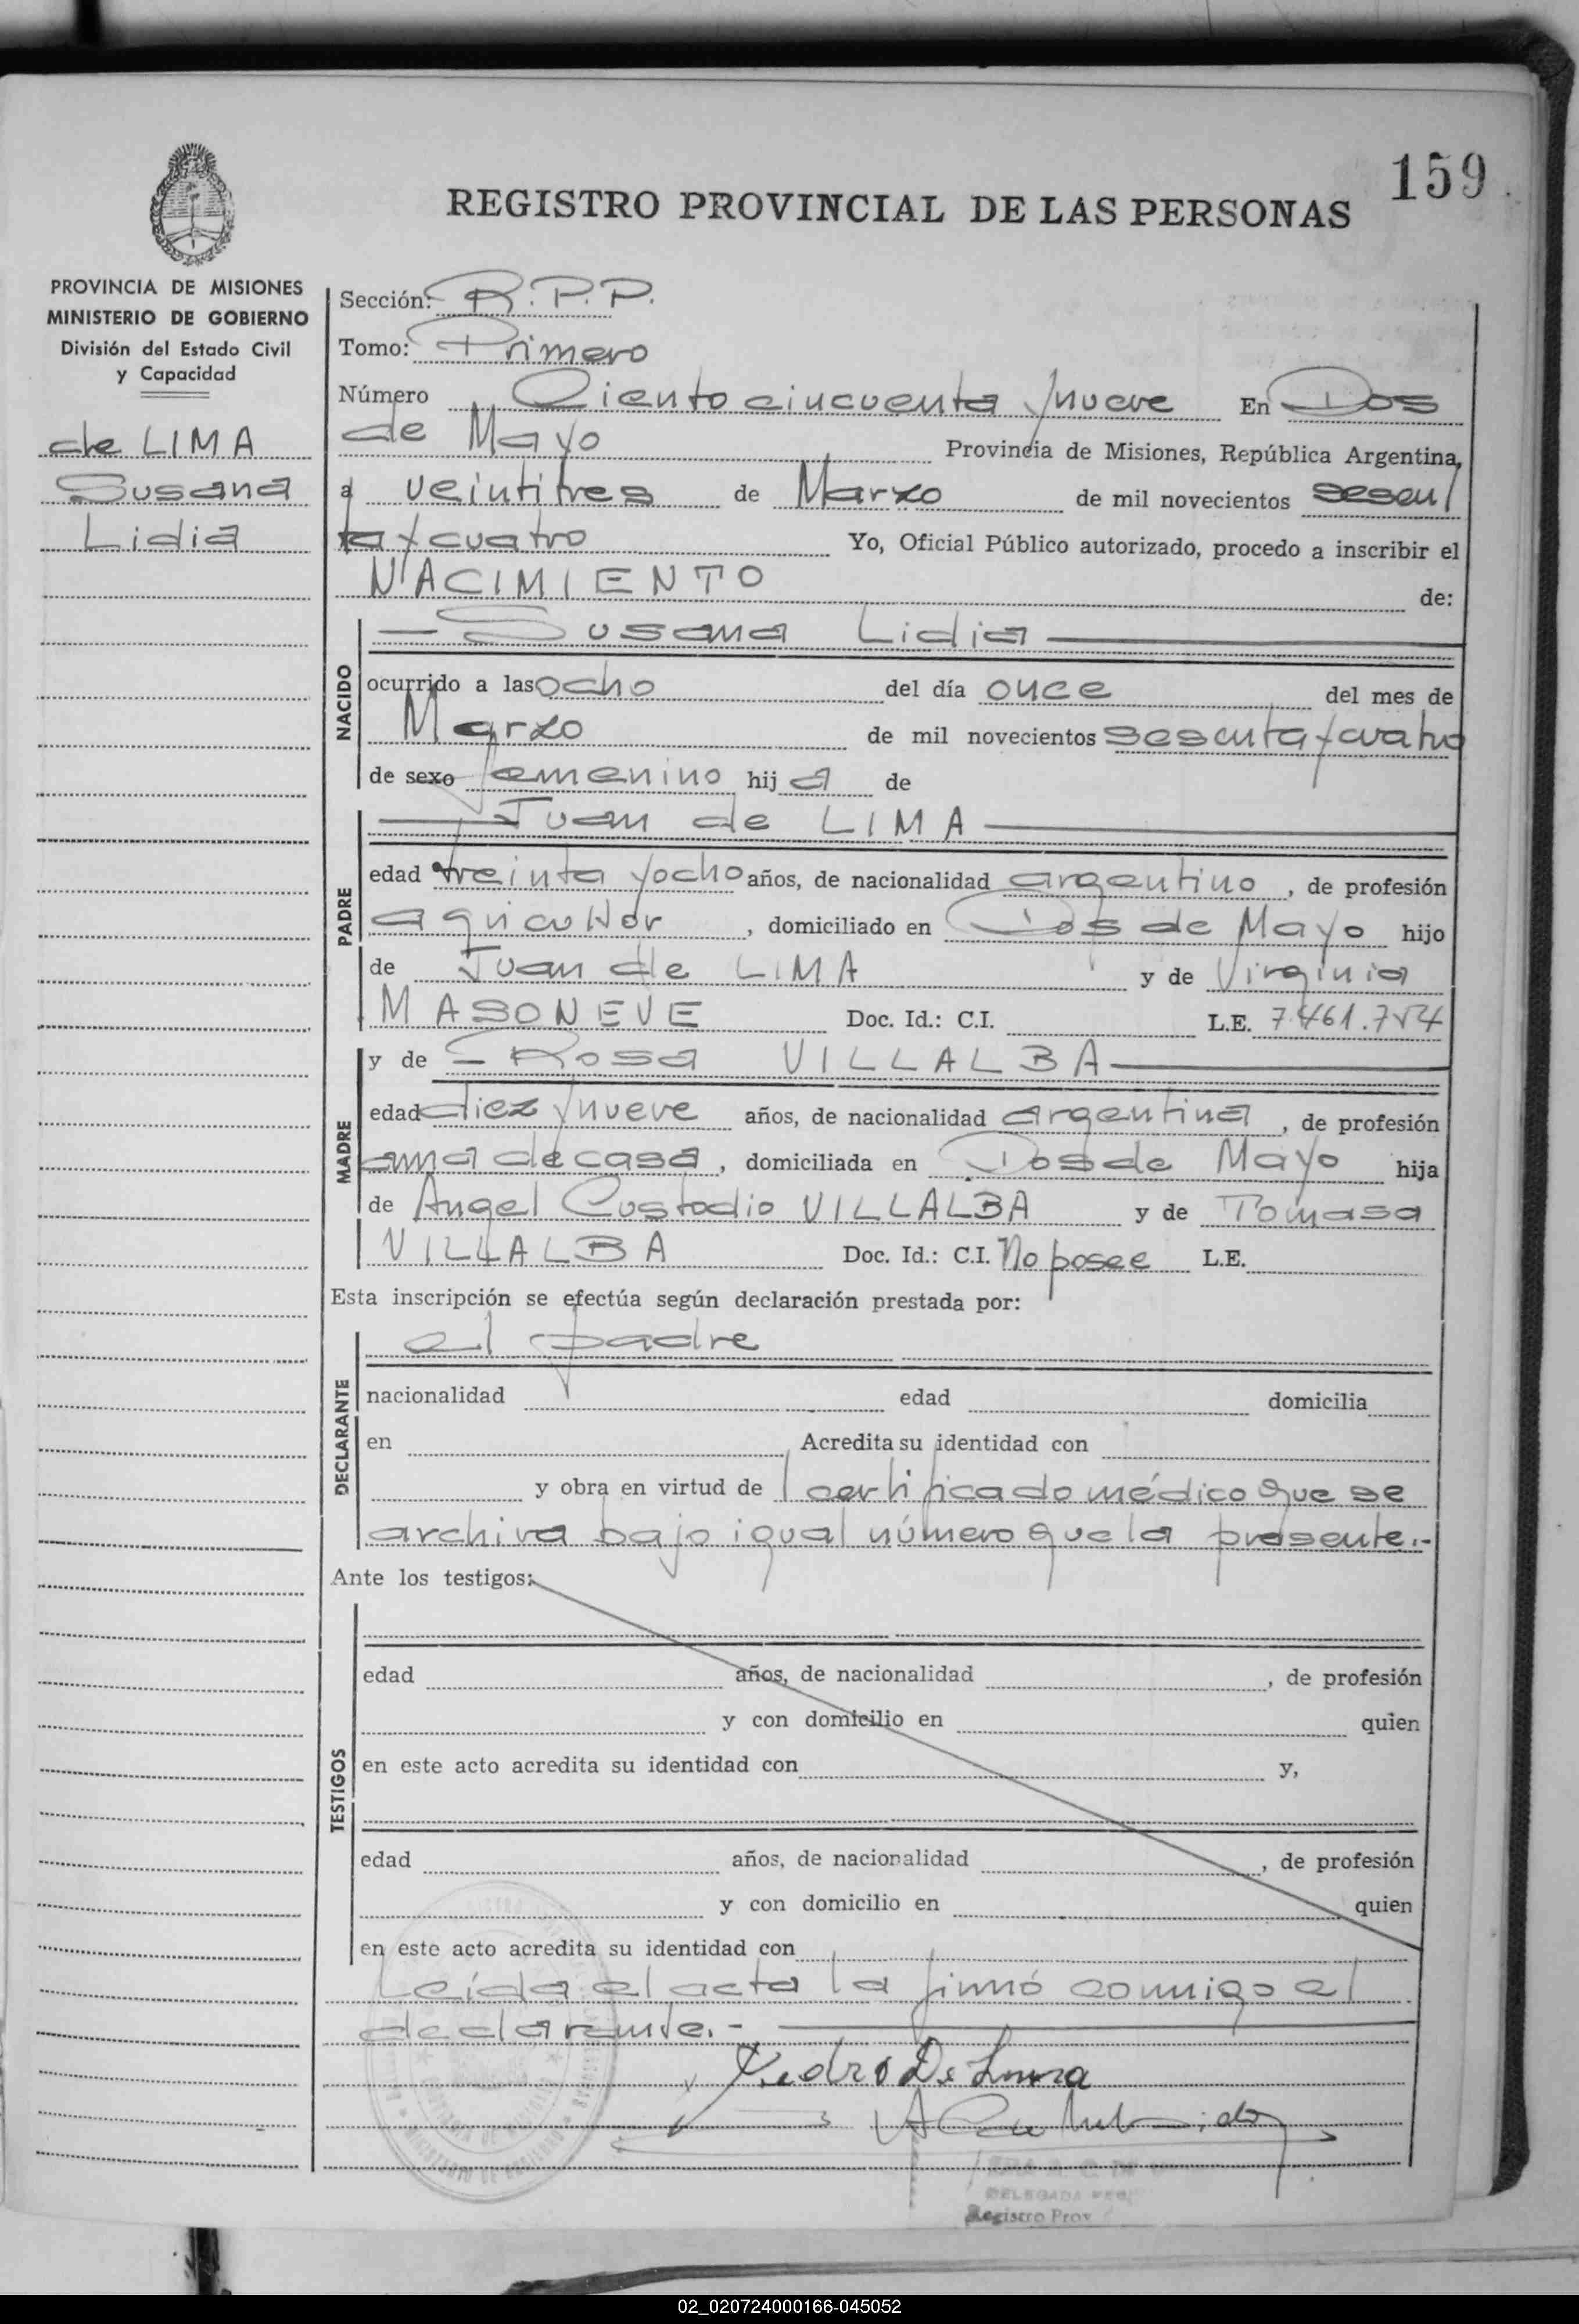 159
REGISTRO PROVINCIAL DE LAS PERSONAS
PROVINCIA DE MISIONES
MINISTERIO DE GOBIERNO
División del Estado Civil
y Capacidad
de LIMA
Susana
Lidia
Sección: R.P.P.
Tomo: Primero
Número Ciento cincuenta y nueve En Dos
de Mayo Provincia de Misiones, República Argentina,
a veintitres de Marzo de mil novecientos sesen/
ta y cuatro Yo, Oficial Público autorizado, procedo a inscribir el
NACIMIENTO de:
NACIDO
— Susana Lidia —
ocurrido a las ocho del día once del mes de
Marzo de mil novecientos sesenta y cuatro
de sexo femenino hija de
PADRE
— Juan de LIMA —
edad treinta y ocho años, de nacionalidad argentino, de profesión
agricultor, domiciliado en Dos de Mayo hijo
de Juan de LIMA y de Virginia
MASONEVE Doc. Id.: C.I. L.E. 7.461.754
MADRE
y de — Rosa VILLALBA —
edad diez y nueve años, de nacionalidad argentina, de profesión
ama de casa, domiciliada en Dos de Mayo hija
de Angel Custodio VILLALBA y de Tomasa
VILLALBA Doc. Id.: C.I. No posee L.E.
Esta inscripción se efectúa según declaración prestada por:
DECLARANTE
el padre
nacionalidad edad domicilia
en Acredita su identidad con
y obra en virtud de l certificado médico que se
archiva bajo igual número que la presente.-
Ante los testigos:
TESTIGOS
edad años, de nacionalidad , de profesión
y con domicilio en quien
en este acto acredita su identidad con y,
edad años, de nacionalidad , de profesión
y con domicilio en quien
en este acto acredita su identidad con
Leída el acta la firmó conmigo el
declarante.-
DELEGADA
Registro Prov
02_020724000166-045052